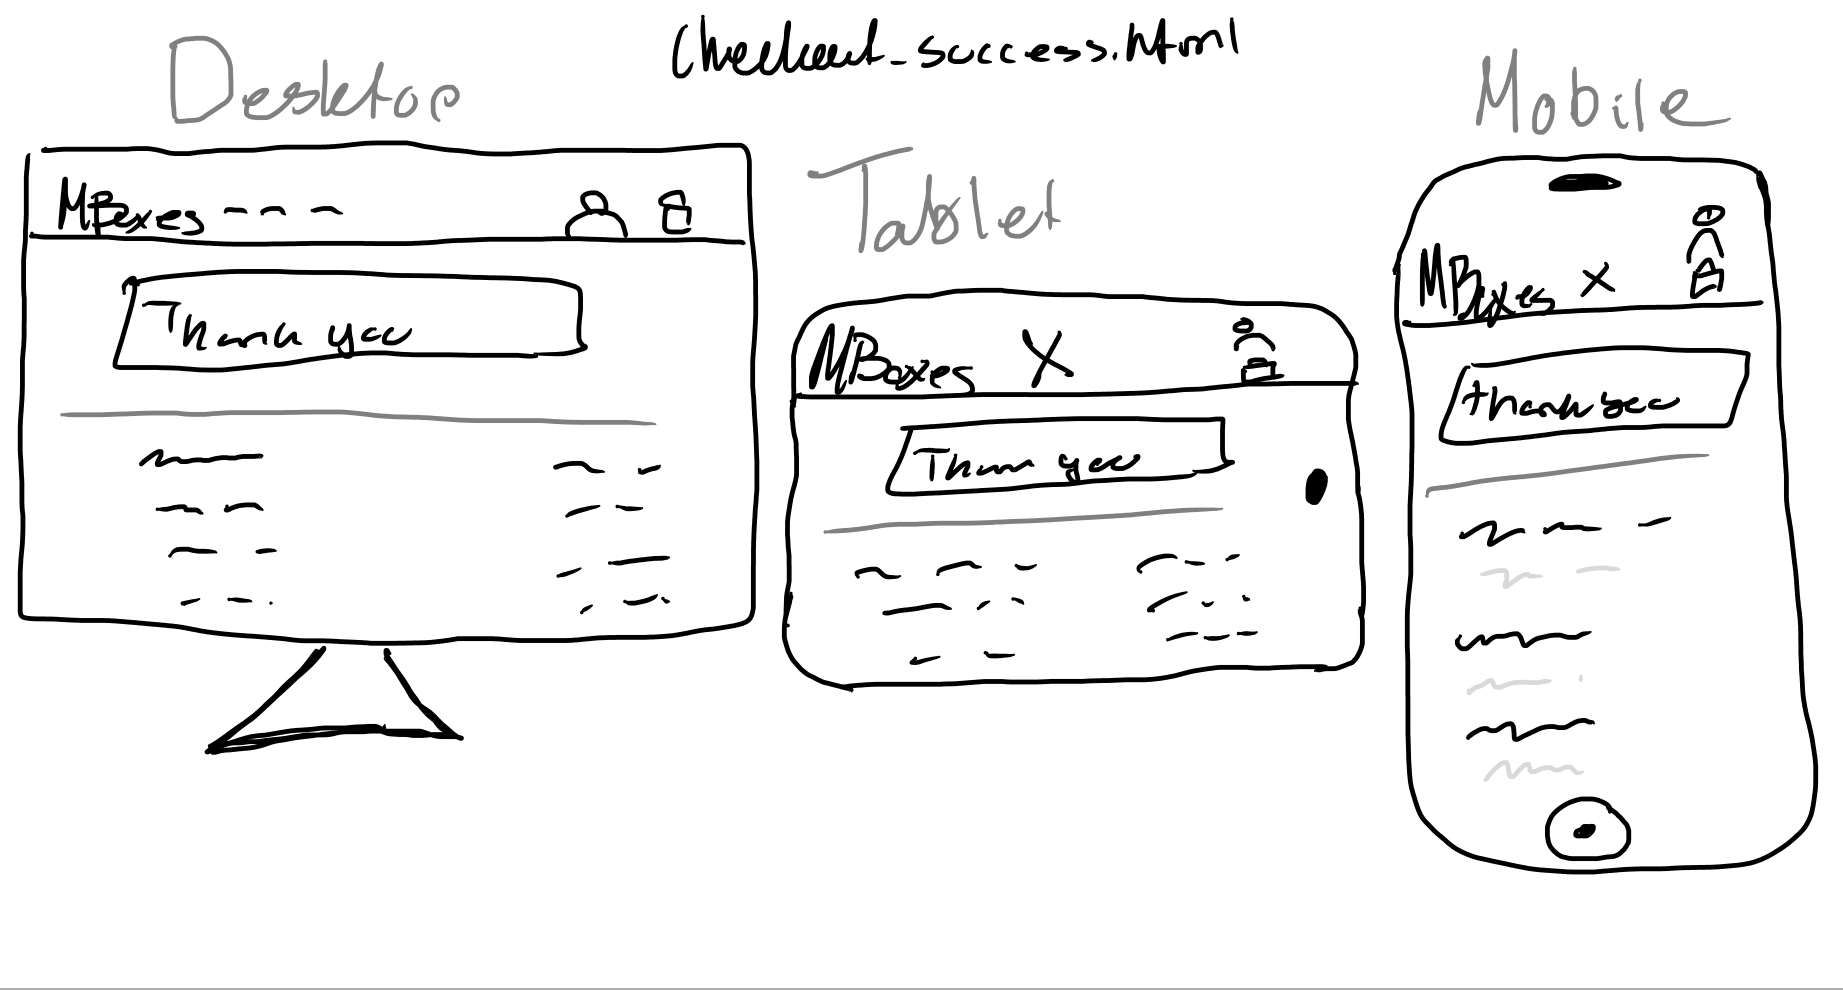 Checkout_success.html
Desktop
MBoxes
Thank you
Tablet
MBoxes X
Thank you
Mobile
MBoxes X
Thank you